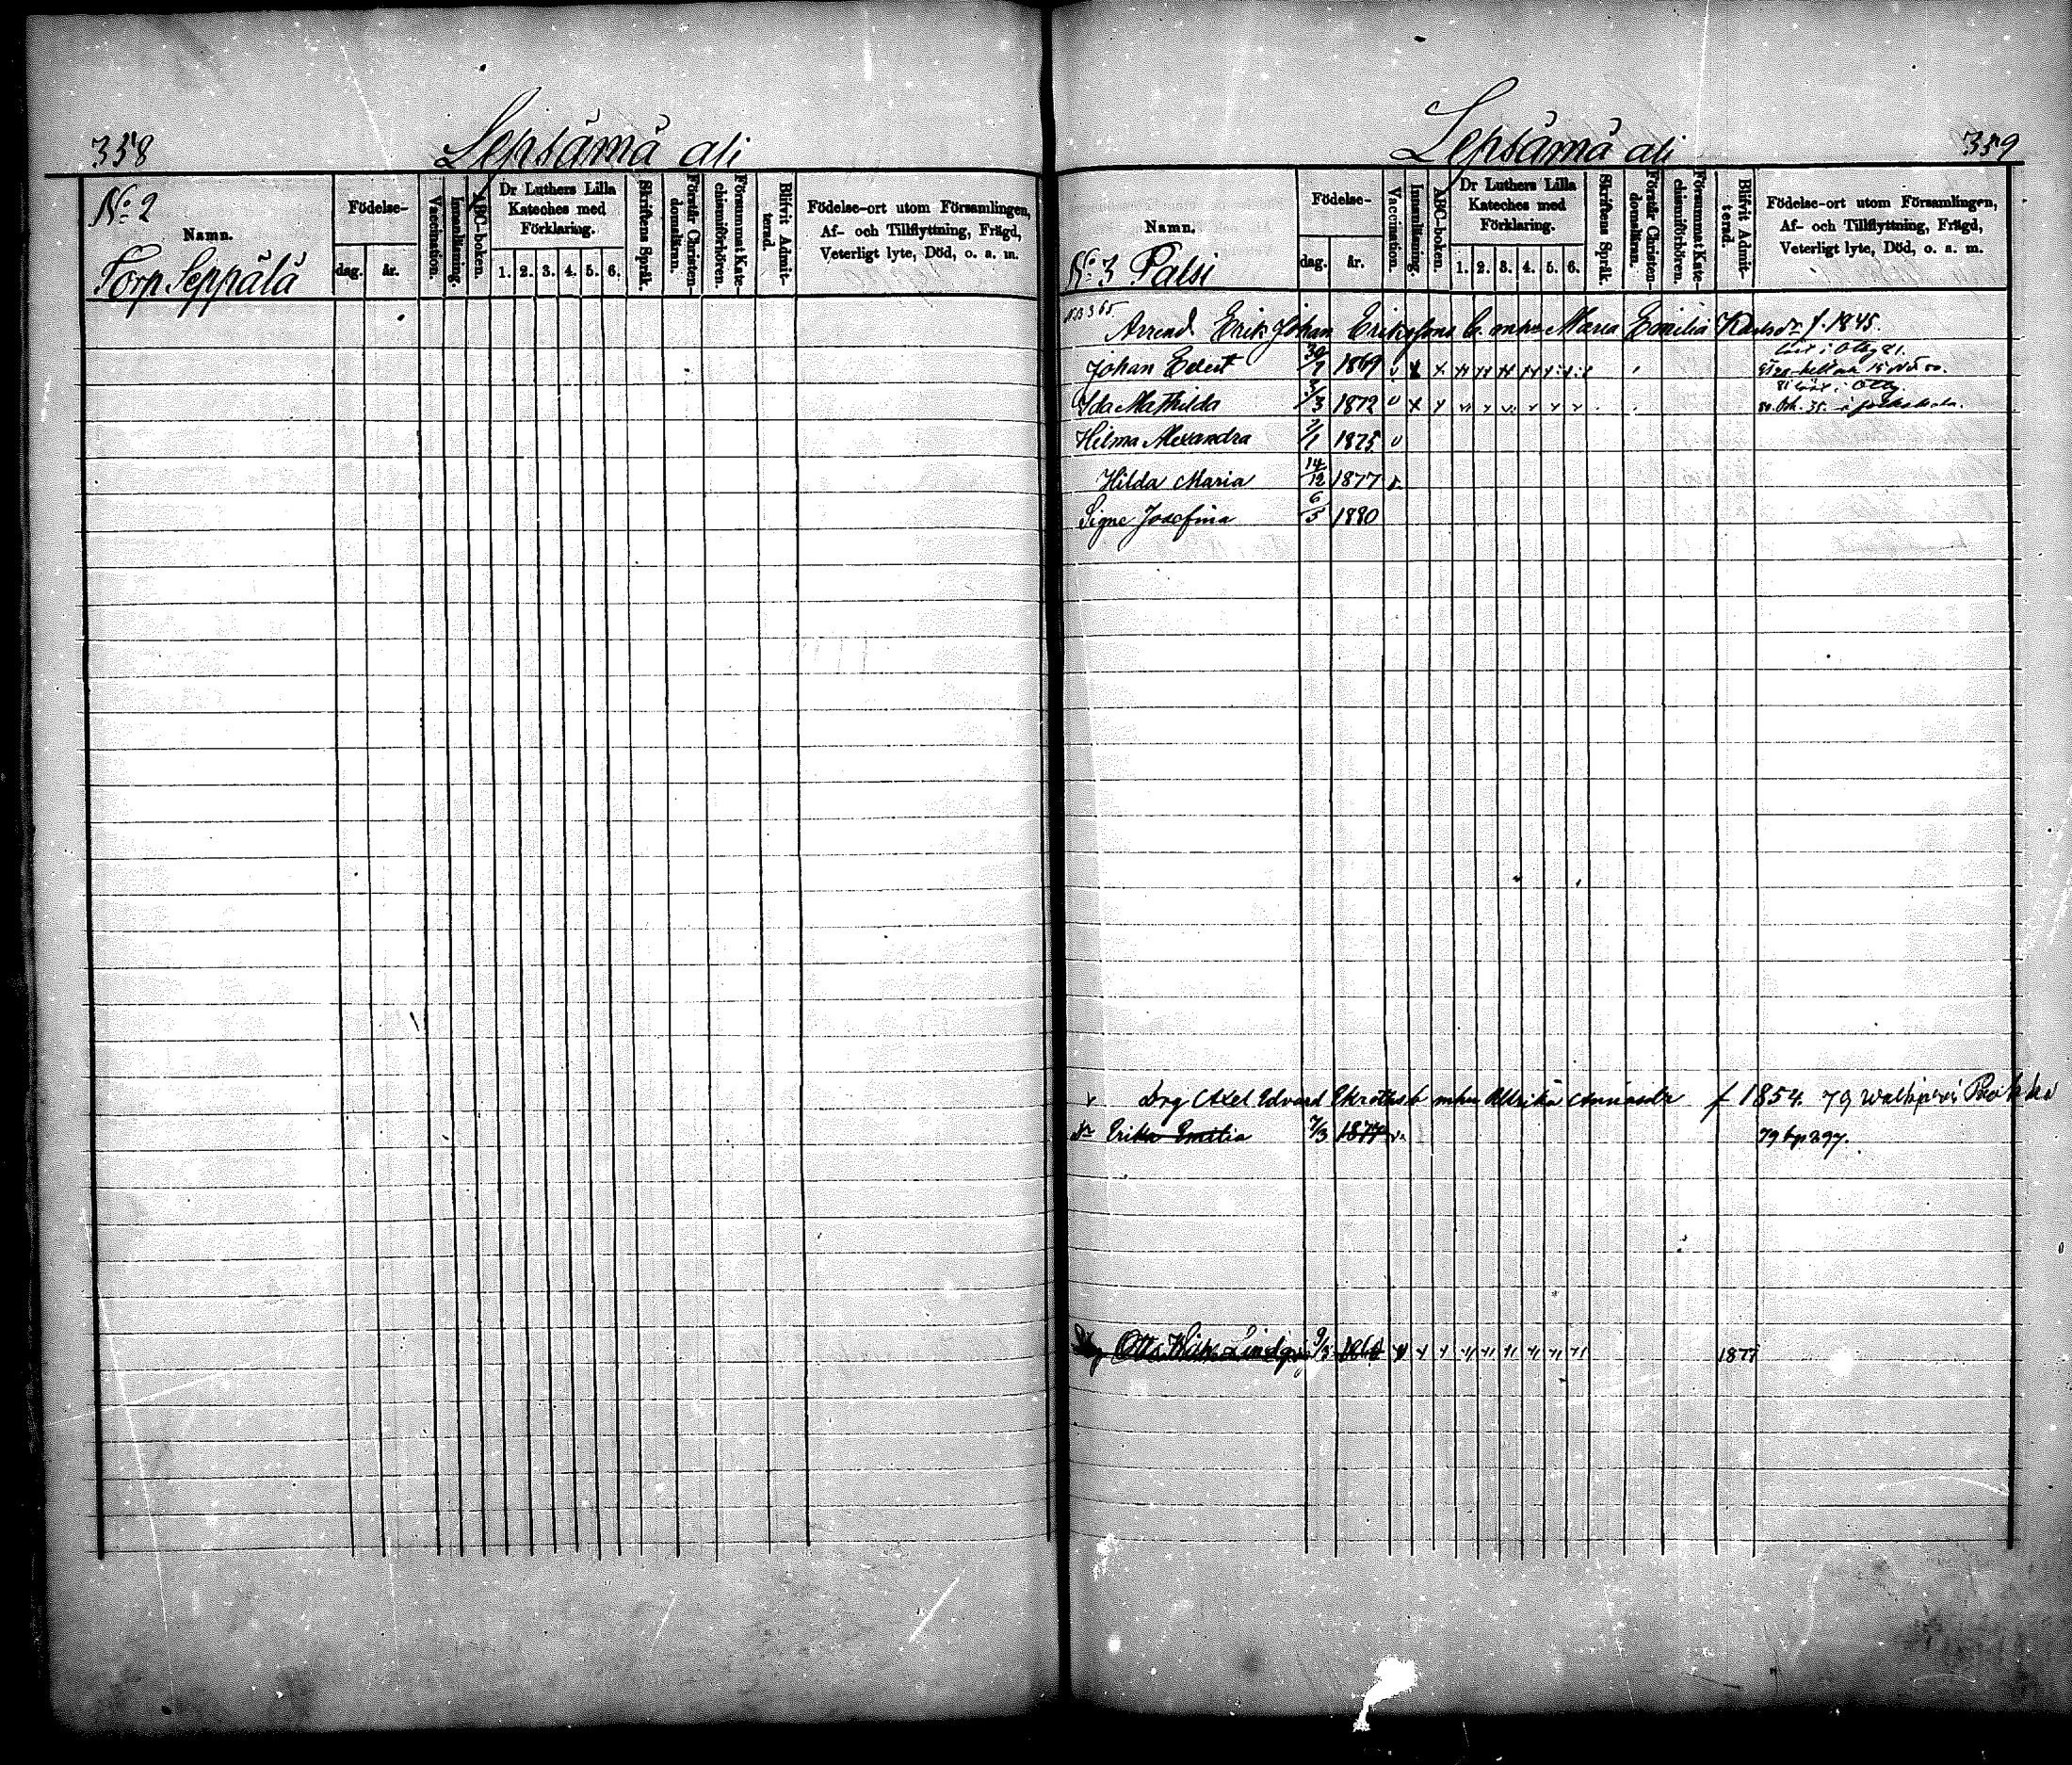 358
Lepsämä ali
No 2
Namn.
Torp Seppälä
Födelse-
dag. år.
Vaccination.
Innanläsning.
ABC-boken.
Dr Luthers Lilla
Kateches med
Förklaring.
1. 2. 3. 4. 5. 6.
Skriftens Språk.
Förstår Christen-
domsläran.
Försummat Kate-
chismiförhören.
Blifvit Admit-
terad.
Födelse-ort utom Församlingen,
Af- och Tillflyttning, Frägd,
Veterligt lyte, Död, o. a. m.
Lepsämä ali
359
Namn.
No 3 Palsi
Födelse-
dag. år.
Vaccination.
Innanläsning.
ABC-boken.
Dr Luthers Lilla
Kateches med
Förklaring.
1. 2. 3. 4. 5. 6.
Skriftens Språk.
Förstår Christen-
domsläran.
Försummat Kate-
chismiförhören.
Blifvit Admit-
terad.
Födelse-ort utom Församlingen,
Af- och Tillflyttning, Frägd,
Veterligt lyte, Död, o. a. m.
365
Arrend. Erik Johan Erikssons b. m. hu Maria Emilia f. 1845.
Johan Edert 30/7 1869 v x x
Ida Mathilda 3/3 1872 v x x
Hilma Alexandra 2/1 1875 v
Hilda Maria 14/12 1877 v
Signe Josefina 6/5 1880
v Drg Axel Edvard b m hu Ulrika f 1854. 79
Erika Emilia 7/3 1877 v
79 297.
Drg Otto 9/3 1877